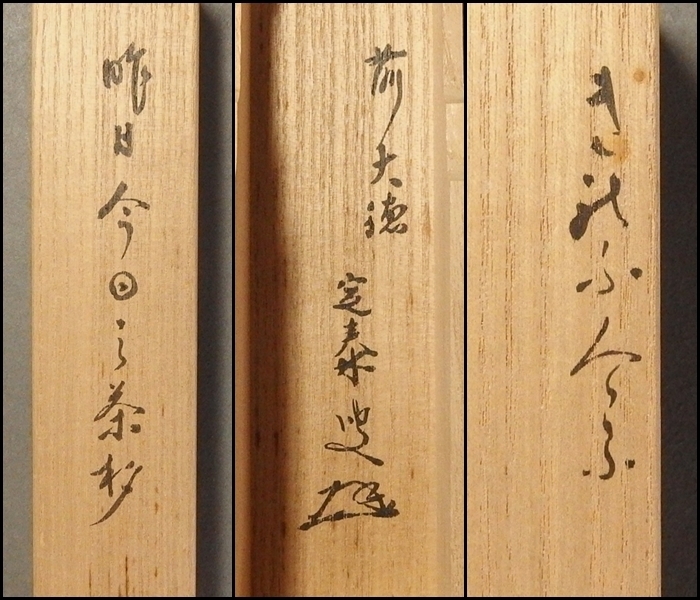 昨日今日之茶杓
前大徳
定泰叟
き能ふ介ふ